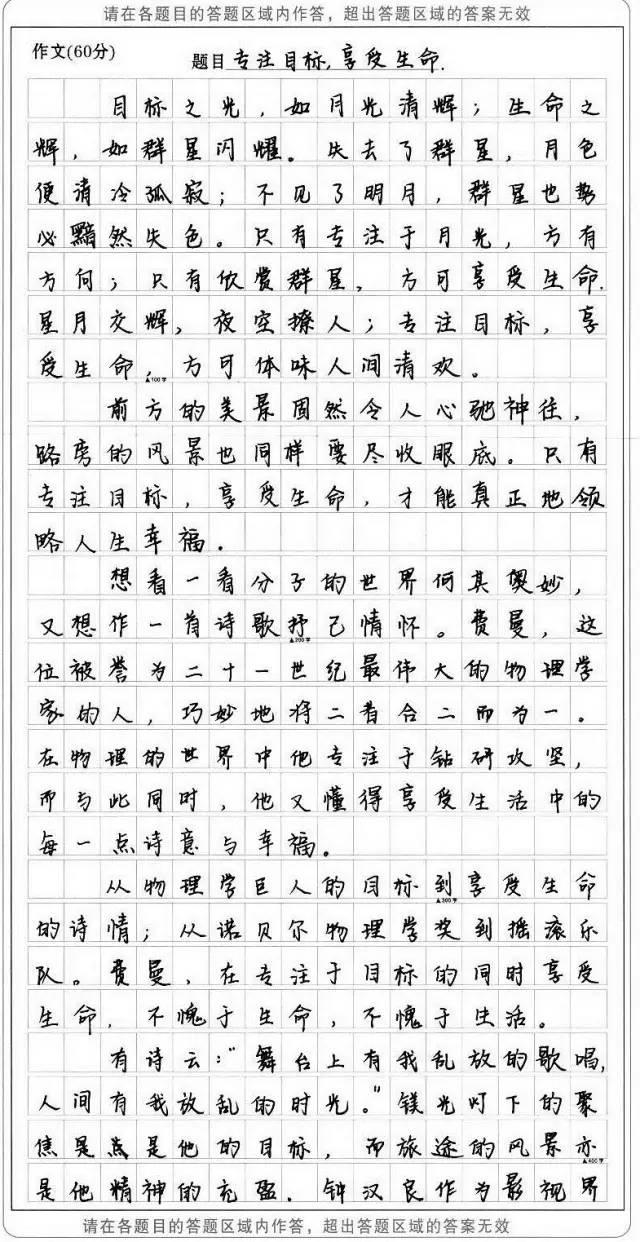 请在各题目的答题区域内作答，超出答题区域的答案无效
作文(60分)
题目 专注目标,享受生命.
目标之光，如月光清辉；生命之
辉，如群星闪耀。失去了群星，月色
便清冷孤寂；不见了明月，群星也势
必黯然失色。只有专注于月光，方有
方向；只有欣赏群星，方可享受生命.
星月交辉，夜空撩人；专注目标，享
受生命，方可体味人间清欢。
▲100字
前方的美景固然令人心驰神往，
路旁的风景也同样要尽收眼底。只有
专注目标，享受生命，才能真正地领
略人生幸福.
想看一看分子的世界何其奥妙，
又想作一首诗歌抒己情怀。费曼，这
▲200字
位被誉为二十一世纪最伟大的物理学
家的人，巧妙地将二者合二而为一。
在物理的世界中他专注于钻研攻坚，
而与此同时，他又懂得享受生活中的
每一点诗意与幸福。
从物理学巨人的目标到享受生命
▲300字
的诗情；从诺贝尔物理学奖到摇滚乐
队。费曼，在专注于目标的同时享受
生命，不愧于生命，不愧于生活。
有诗云："舞台上有我乱放的歌唱，
人间有我放乱的时光。"镁光灯下的聚
焦是点是他的目标，而旅途的风景亦
▲400字
是他精神的充盈.钟汉良作为影视界
请在各题目的答题区域内作答，超出答题区域的答案无效